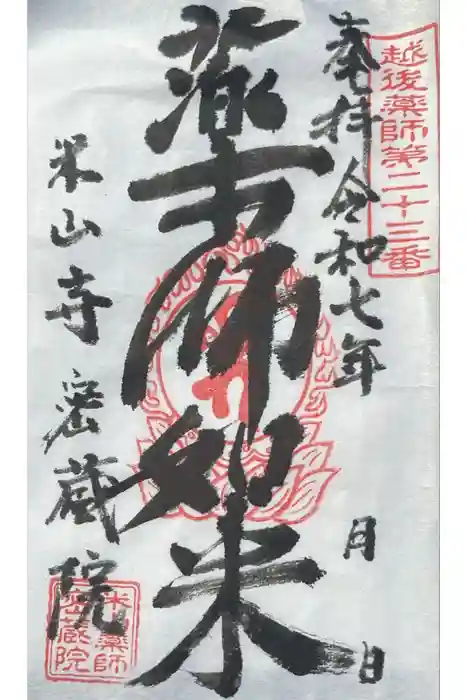 越後薬師第二十三番
奉拝 令和七年 月 日
薬師如来
米山寺密蔵院
米山薬師
密蔵院